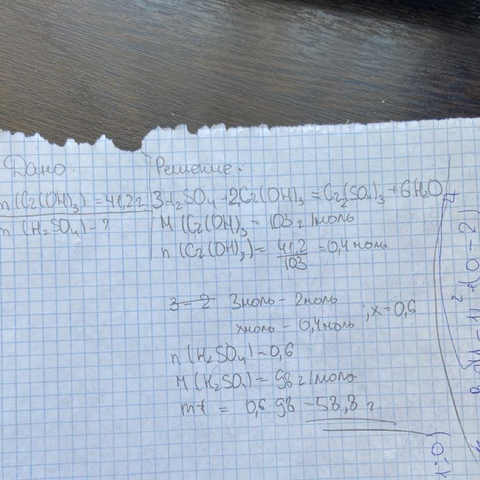 Дано:
Решение:
m (Cr(OH)3 = 41,2 г
3H2SO4 + 2Cr(OH)3 = Cr2(SO4)3 + 6H2O
m (H2SO4) - ?
M (Cr(OH)3 = 103 г/моль
n (Cr(OH)3) = 41,2/103 = 0,4 моль
3 - 2 3моль - 2моль
xмоль - 0,4моль ; x = 0,6
n (H2SO4) = 0,6
M (H2SO4) = 98 г/моль
= 0,6 · 98 = 58,8 г.